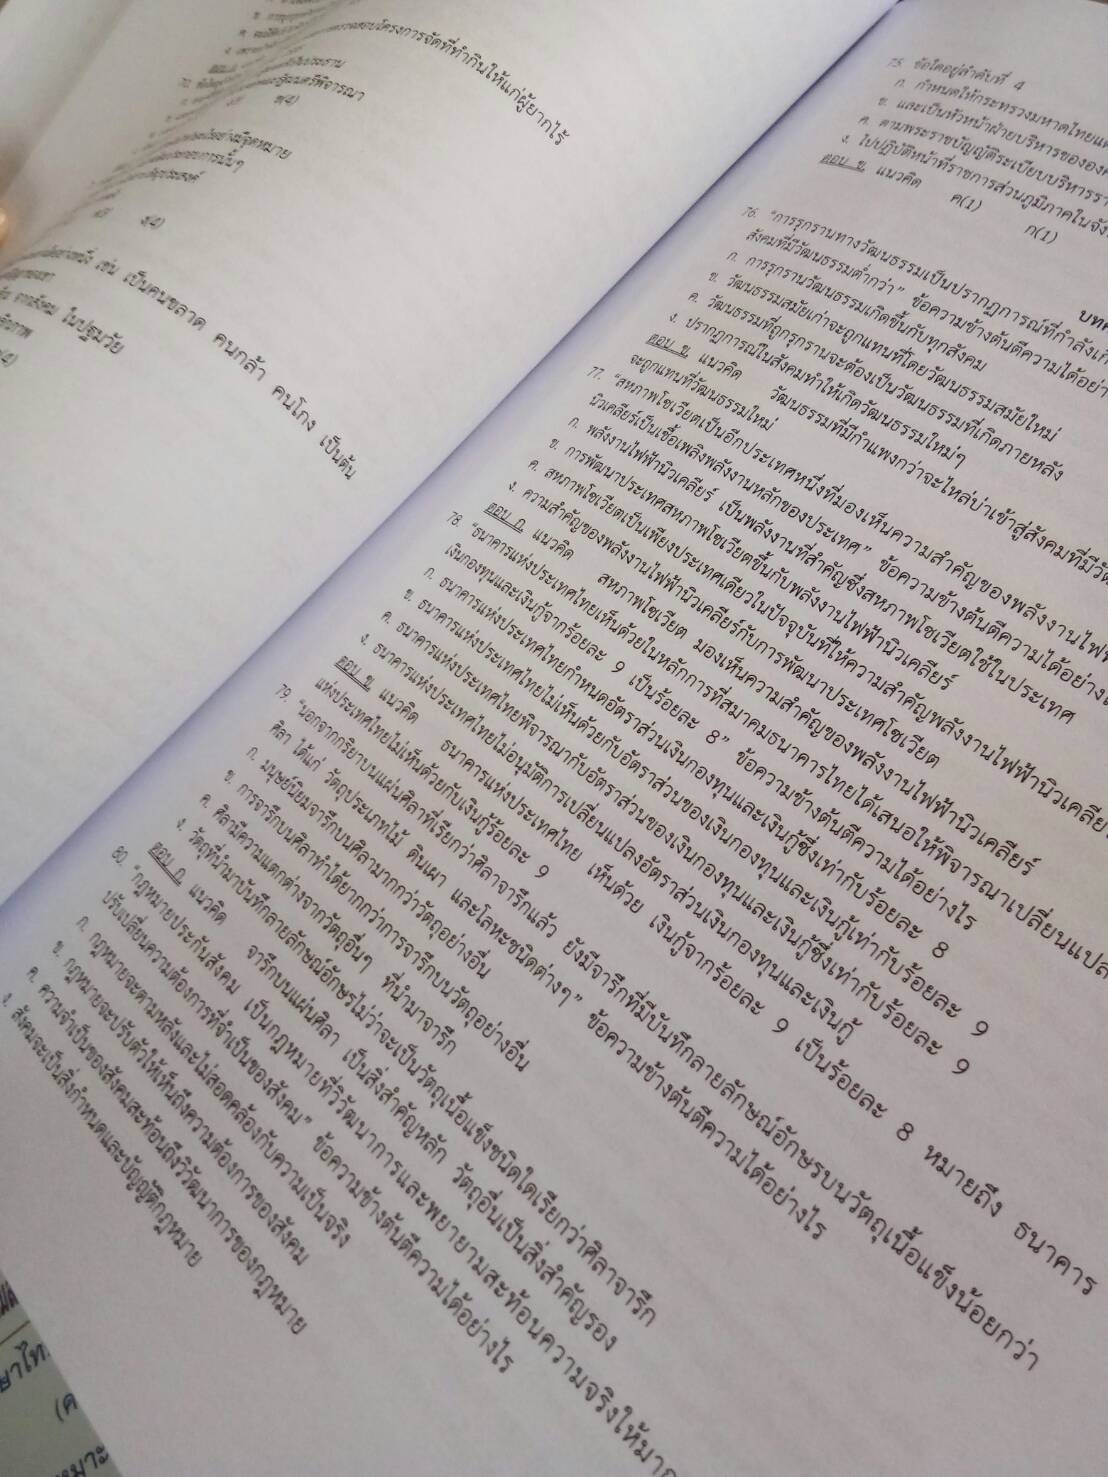 สอบโครงการจัดที่ทำกินให้แก่ผู้ยากไร้
เช่น เป็นคนฉลาด คนกล้า คนโกง เป็นต้น
จากสังคม ในปฐมวัย
75. ข้อใดอยู่ลำดับที่ 4
ก. กำหนดให้กระทรวงมหาดไทย
ข. และเป็นหัวหน้าฝ่ายบริหารของ
ค. ตามพระราชบัญญัติระเบียบบริหาร
ง. ไปปฏิบัติหน้าที่ราชการส่วนภูมิภาคใน
ตอบ ข. แนวคิด ค(1) ก(1)
76. "การรุกรานทางวัฒนธรรมเป็นปรากฏการณ์ที่กำลัง
สังคมที่มีวัฒนธรรมต่ำกว่า" ข้อความข้างต้นตีความได้อย่าง
ก. การรุกรานวัฒนธรรมเกิดขึ้นกับทุกสังคม
ข. วัฒนธรรมสมัยเก่าจะถูกแทนที่โดยวัฒนธรรมสมัยใหม่
ค. วัฒนธรรมที่ถูกรุกรานจะต้องเป็นวัฒนธรรมที่เกิดภายหลัง
ง. ปรากฏการณ์ในสังคมทำให้เกิดวัฒนธรรมใหม่ๆ
ตอบ ข. แนวคิด วัฒนธรรมที่มีกำแพงกว่าจะไหล่บ่าเข้าสู่สังคมที่มี
จะถูกแทนที่วัฒนธรรมใหม่
77. "สหภาพโซเวียตเป็นอีกประเทศหนึ่งที่มองเห็นความสำคัญของพลังงานไฟฟ้า
นิวเคลียร์เป็นเชื้อเพลิงพลังงานหลักของประเทศ" ข้อความข้างต้นตีความได้อย่าง
ก. พลังงานไฟฟ้านิวเคลียร์ เป็นพลังงานที่สำคัญซึ่งสหภาพโซเวียตใช้ในประเทศ
ข. การพัฒนาประเทศสหภาพโซเวียตขึ้นกับพลังงานไฟฟ้านิวเคลียร์
ค. สหภาพโซเวียตเป็นเพียงประเทศเดียวในปัจจุบันที่ให้ความสำคัญพลังงานไฟฟ้านิวเคลียร์
ง. ความสำคัญของพลังงานไฟฟ้านิวเคลียร์กับการพัฒนาประเทศโซเวียต
ตอบ ก. แนวคิด สหภาพโซเวียต มองเห็นความสำคัญของพลังงานไฟฟ้านิวเคลียร์
78. "ธนาคารแห่งประเทศไทยเห็นด้วยในหลักการที่สมาคมธนาคารไทยได้เสนอให้พิจารณาเปลี่ยนแปลง
เงินกองทุนและเงินกู้จากร้อยละ 9 เป็นร้อยละ 8" ข้อความข้างต้นตีความได้อย่างไร
ก. ธนาคารแห่งประเทศไทยกำหนดอัตราส่วนเงินกองทุนและเงินกู้ซึ่งเท่ากับร้อยละ 8
ข. ธนาคารแห่งประเทศไทยไม่เห็นด้วยกับอัตราส่วนของเงินกองทุนและเงินกู้เท่ากับร้อยละ 9
ค. ธนาคารแห่งประเทศไทยพิจารณากับอัตราส่วนของเงินกองทุนและเงินกู้ซึ่งเท่ากับร้อยละ 9
ง. ธนาคารแห่งประเทศไทยไม่อนุมัติการเปลี่ยนแปลงอัตราส่วนเงินกองทุนและเงินกู้
ตอบ ข. แนวคิด ธนาคารแห่งประเทศไทย เห็นด้วย เงินกู้จากร้อยละ 9 เป็นร้อยละ 8 หมายถึง ธนาคาร
แห่งประเทศไทยไม่เห็นด้วยกับเงินกู้ร้อยละ 9
79. "นอกจากกริยาบนแผ่นศิลาที่เรียกว่าศิลาจารึกแล้ว ยังมีจารึกที่มีบันทึกลายลักษณ์อักษรบนวัตถุเนื้อแข็งน้อยกว่า
ศิลา ได้แก่ วัตถุประเภทไม้ ดินเผา และโลหะชนิดต่างๆ" ข้อความข้างต้นตีความได้อย่างไร
ก. มนุษย์นิยมจารึกบนศิลามากกว่าวัตถุอย่างอื่น
ข. การจารึกบนศิลาทำได้ยากกว่าการจารึกบนวัตถุอย่างอื่น
ค. ศิลามีความแตกต่างจากวัตถุอื่นๆ ที่นำมาจารึก
ง. วัตถุที่นำมาบันทึกลายลักษณ์อักษรไม่ว่าจะเป็นวัตถุเนื้อแข็งชนิดใดเรียกว่าศิลาจารึก
ตอบ ก. แนวคิด จารึกบนแผ่นศิลา เป็นสิ่งสำคัญหลัก วัตถุอื่นเป็นสิ่งสำคัญรอง
80. "กฎหมายประกันสังคม เป็นกฎหมายที่วิวัฒนาการและพยายามสะท้อนความจริงให้มาก
ปรับเปลี่ยนความต้องการที่จำเป็นของสังคม" ข้อความข้างต้นตีความได้อย่างไร
ก. กฎหมายจะตามหลังและไม่สอดคล้องกับความเป็นจริง
ข. กฎหมายจะปรับตัวให้เห็นถึงความต้องการของสังคม
ค. ความจำเป็นของสังคมสะท้อนถึงวิวัฒนาการของกฎหมาย
ง. สังคมจะเป็นสิ่งกำหนดและบัญญัติกฎหมาย